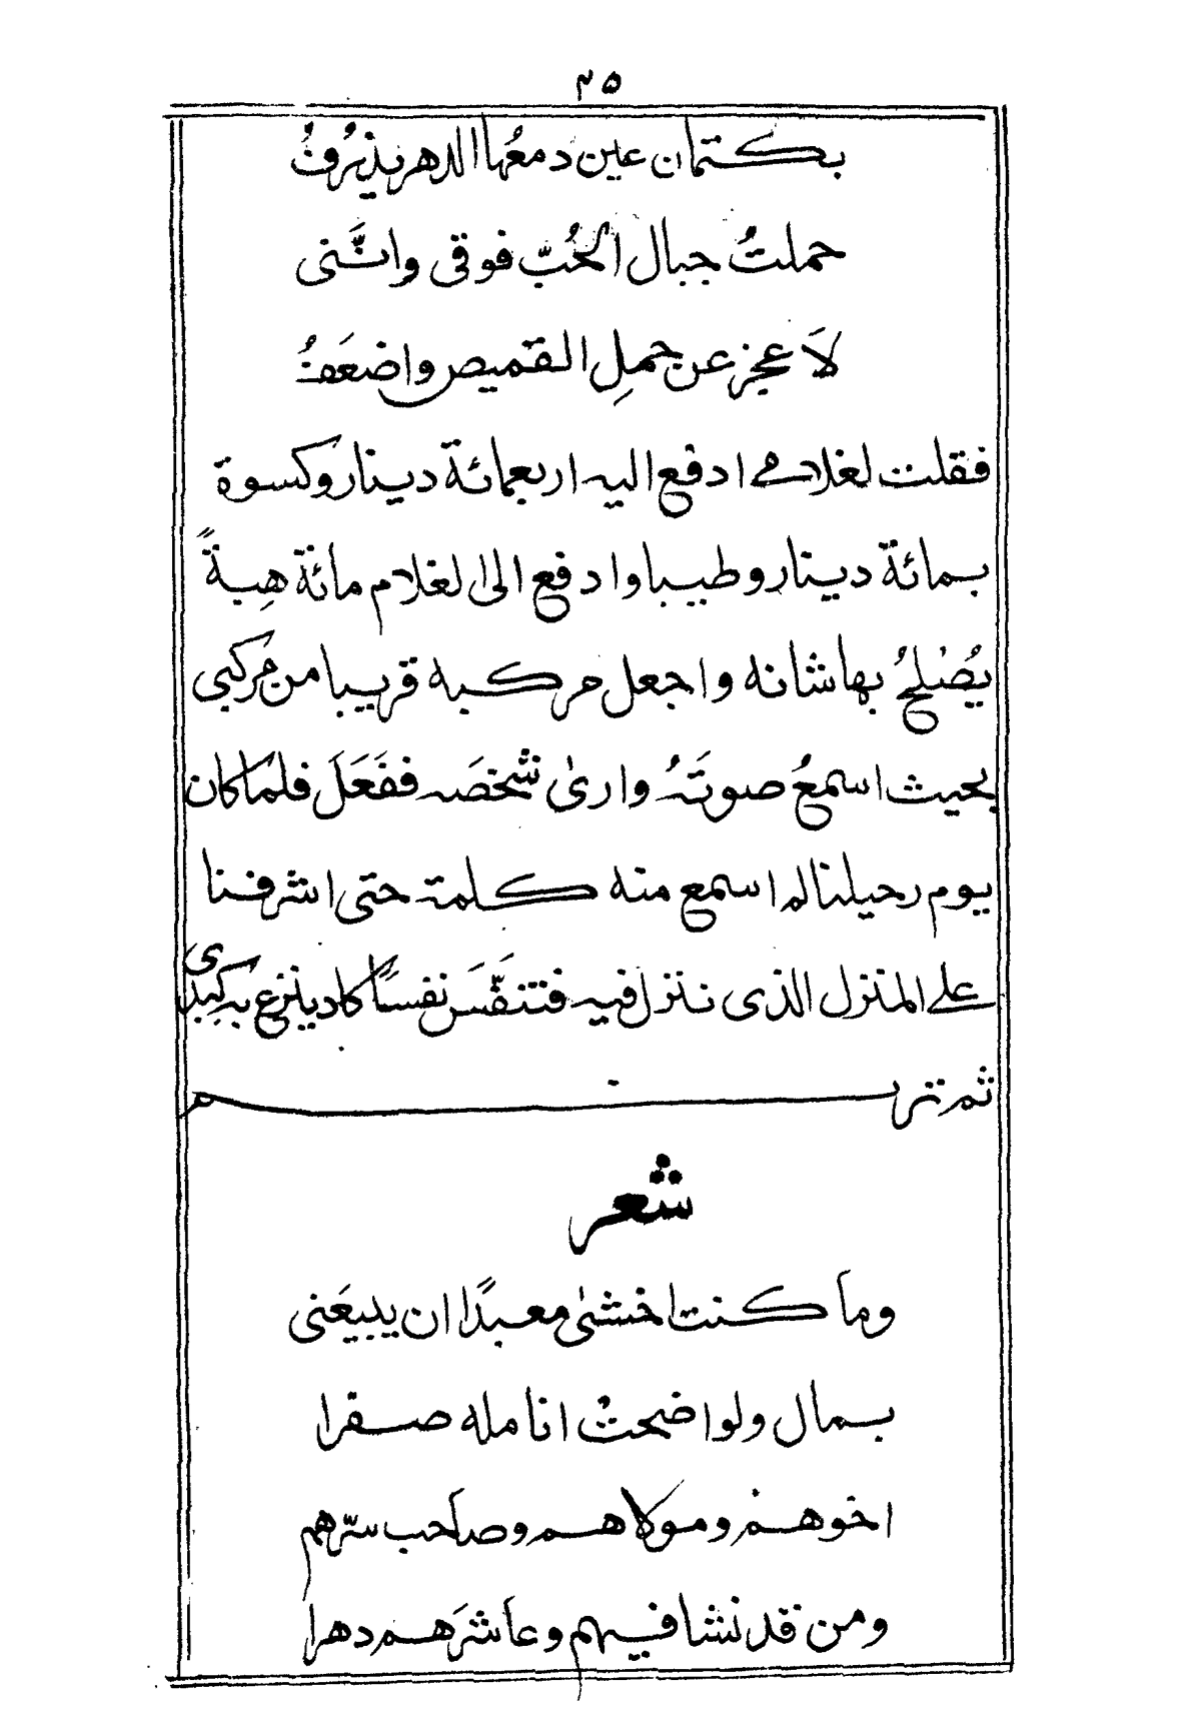 ٣٥
بكتمان عين دمعُها الدهر يذرُفُ
حملتُ جبال الحُبّ فوقى وانَّنى
لاَعجز عن حملِ القميص واضعَفُ
فقلت لغلامى ادفع اليه اربعمائة دينار وكسوة
بمائة دينار وطيبا وادفع الى الغلام مائة هِبةً
يُصْلحُ بها شانه واجعل مركبه قريبا من مَركبى
بحيث اسمعُ صوتَهُ وارىٰ شخصَه ففَعَلَ فلما كان
يوم رحيلنا لم اسمع منه كلمة حتى اشرفنا
على المنزل الذى ننزل فيه فتنفَّسَ نفسًا كاد ينزع به كبِدى
ثم ترنم
شعر
وما كنت اخشىٰ معبدًا ان يبيعَنى
بمال ولو اضحتْ انامله صفرا
اخوهم ومولاهم وصاحب سرّهم
ومن قد نشا فيهم وعاشرَهم دهرا